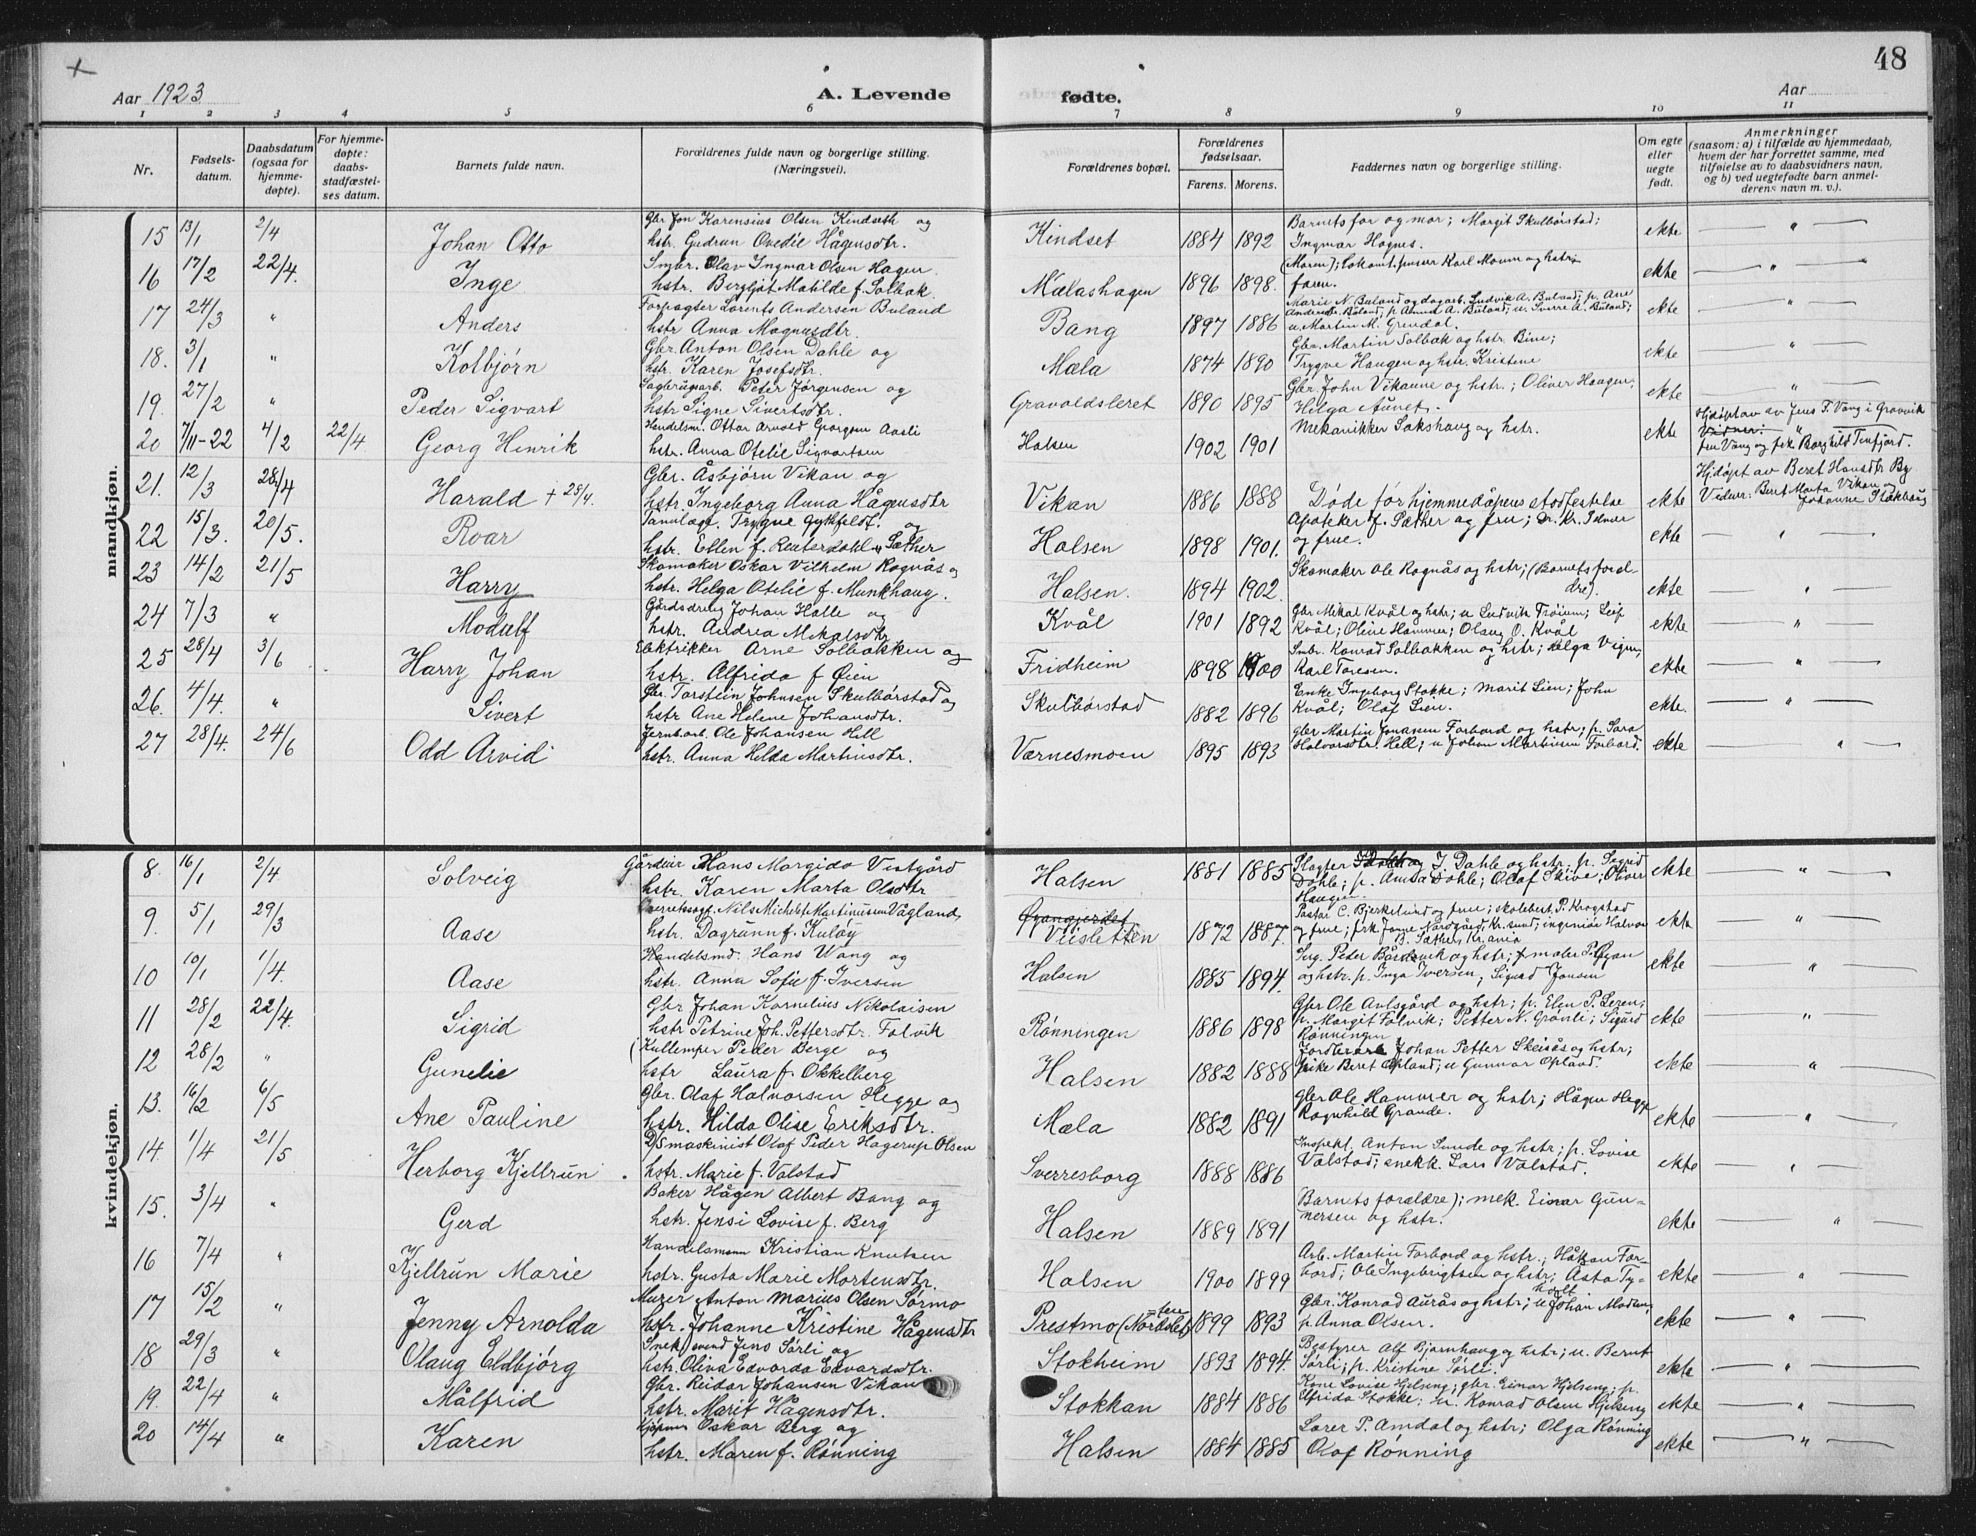 48
Aar 1923
A. Levende
fødte.
Aar
1 2 3 4 5 6 7 8 9 10 11
Nr.
Fødsels-
datum.
Daabsdatum
(ogsaa for
hjemme-
døpte).
For hjemme-
døpte:
daabs-
stadfæstel-
ses datum.
Barnets fulde navn.
Forældrenes fulde navn og borgerlige stilling.
(Næringsvei).
Forældrenes bopæl.
Forældrenes
fødselsaar.
Farens. Morens.
Faddernes navn og borgerlige stilling.
Om egte
eller
uegte
født.
Anmerkninger
(saasom: a) i tilfælde av hjemmedaab,
hvem der har forrettet samme, med
tilføielse av to daabsvidners navn,
og b) ved uegtefødte barn anmel-
derens navn m. v.).
mandkjøn.
15 13/1 2/4 Johan Otto
Gbr Jon Karensius Olsen Kindseth og
hstr. Gudrun Ovedie Hågensdtr.
Kindset 1884 1892
Barnets far og mor; Margit Skulbørstad;
Ingmar Hognes.
ekte "
16 17/2 22/4. Inge
Smbr. Olav Ingmar Olsen Hagen
hstr. Bergljot Matilde f. Solbak.
Mælashagen 1896 1898.
(Moren); Lokomt.pusser Karl Moum og hstr;
faren.
ekte "
17 24/3 " Anders
Forpagter Lorents Andersen Buland
hstr Anna Magnusdtr.
Bang 1897 1886
Marie N. Buland og dagarb. Ludvik A. Buland; p. Ane
Andersdtr. Buland; p Amund A. Buland; u. Sverre A. Buland;
u. Martin M. Grendal.
ekte "
18. 3/1 " Kolbjørn
Gbr. Anton Olsen Dahle og
hstr. Karen Josefsdtr.
Mæla 1874 1890
Gbr. Martin Solbak og hstr Bine;
Trygve Haugen og hstr. Kristine
ekte "
19. 27/2 " Peder Sigvart
Saglerugsarb. Peter Jørgensen og
hstr Signe Sivertsdtr.
Gravoldsleret 1890 1895
Gbr John Vikanne og hstr.; Oliver Haugen;
Helga Aunet.
ekte "
20 7/11-22 4/2 22/4 Georg Henrik
Handelsm. Ottar Arvold Georgsen Aasli
hstr. Anna Otelie Sigvartsen
Halsen 1902 1901
Mekanikker Sakshaug og hstr.
ekte
Hjdøpt av av Jens F. Vang i Gravvik
Vidner:
fru Vang og frk Borghild Tenfjord.
21. 12/3 28/4 Harald + 28/4.
Gbr. Åsbjørn Vikan og
hstr. Ingeborg Anna Hågensdtr
Vikan 1886 1888
Døde før hjemmedåpens stadfestelse
ekte
Hjdøpt av Beret Hansdtr By
Vidner: Beret Marta Vikan og
Johanne Stokhaug
22 15/3. 20/5. Roar
Tannlæge. Trygve Gythfeldt. og
hstr. Ellen f. Reuterdahl Sæther
Halsen 1898 1901.
Apoteker f. Sæther og frue; Dr. Kr. Selmer
og frue.
ekte "
23 14/2 21/5 Harry
Skomaker Oskar Vilhelm Rognås og
hstr. Helga Otelie f. Munkhaug.
Halsen. 1894 1902.
Skomaker Ole Rognås og hstr; (Barnets foræl-
dre).
ekte "
24 7/3 " Modulf
Gårdsdreng Johan Halle og
hstr. Andrea Mikalsdtr
Kvål 1901 1892
Gbr Mikal Kvål og hstr; u Ludvik Trøium; Leif
Kvål; Oline Hammer; Olaug O. Kvål
ekte "
25 28/4 3/6 Harry Johan
Elektrikker Arne Solbakken og
hstr. Alfrida f Øien
Fridheim 1898 1900
Smbr. Konrad Solbakken og hstr; Helga Vigen,
Karl Toresen.
ekte "
26. 4/4. " Sivert
Gbr. Torstein Johnsen Skulbørstad og
hstr Ane Helene Johansdtr.
Skulbørstad 1882 1896
Enke Ingeborg Stokke; Marit Lien; John
Kvål; Olaf Lien.
ekte. "
27 28/4. 24/6 Odd Arvid
Jernbarb. Ole Johansen Hell
hstr. Anna Helda Martinsdtr.
Værnesmoen 1895 1893
gbr Martin Jonassen Forbord og hstr; p. Sara
Halvorsdtr. Hell; u Johan Martinsen Forbord.
ekte "
kvindekjøn.
8. 16/1 2/4 Solveig
Gårdeier Hans Margido Vestgård
hstr. Karen Marta Olsdtr
Halsen 1881 1885
Slagter J. Dahle og hstr. p. Sigrid
Dahle; p. Anna Dahle; Olaf Skive; Oliver
Haugen.
ekte "
9. 5/1 29/3 Aase
Overretssagf. Nils Michelet Martinussen Vågland,
hstr. Dagrunn f. Kuløy
Øyangjerdet
Veisletten 1872 1887.
Pastor C. Bjerkelund og frue; skolebest. P. Krogstad
og frue; frk Jonne Nordgård, Kr.sund; ingeniør Halvor
B. Sæther, Kr.ania
ekte "
10 10/1 1/4. Aase
Handelsmd. Hans Wang og
hstr. Anna Sofie f. Iversen
Halsen 1885 1894.
Serg. Peter Bårdsvik og hstr; maler P. Øyan
og hstr. p. Inga Iversen; Sigurd Jonsen
ekte "
11 28/2 22/4. Sigrid
Gbr Johan Kornelius Nikolaisen
hstr Petrine Joh. Pettersdtr. Falvik
Rønningen 1886 1898
Gbr Ole Avlsgård og hstr; p. Elen P. Leren;
p. Margit Falvik; Petter N. Grønli; Sigurd
Rønningen
ekte "
12 28/2 " Gunelie
Kullemper Peder Berge og
hstr Laura f. Okkelberg
Halsen 1882 1888
Johan Petter Skeisås og hstr;
Enke Beret Opland; u Gunnar Opland.
ekte "
13. 16/2 6/5 Ane Pauline
Gbr. Olaf Halvorsen Hegge og
hstr. Hilda Olise Eriksdtr.
Mæla 1882 1891
Gbr Ole Hammer og hstr; Hågen Hegge
Ragnhild Grande.
ekte "
14. 1/4 21/5 Herborg Kjellrun.
D/S maskinist Olaf Peder Hagerup Olsen
hstr. Marie f. Valstad
Sverresborg 1888 1886
Inspekt. Anton Sunde og hstr; p. Lovise
Valstad; snekk. Lars Valstad.
ekte "
15. 3/4 " Gerd
Baker Hågen Albert Bang og
hstr. Jensi Lovise f. Berg
Halsen 1889 1891
Barnets forældre); mek. Einar Gun-
nersen og hstr.
ekte "
16 7/4 " Kjellrun Marie
Handelsmann Kristian Knutsen
hstr. Gusta Marie Mortensdtr.
Halsen 1900 1899
Arb. Martin Forbord og hstr.; Håkon For-
bord; Ole Ingebrigtsen og hstr; Asta Ty-
holt
ekte "
17 15/2 " Jenny Arnolda
Murer Anton Marius Olsen Sørmo
hstr. Johanne Kristine Hågensdtr
Prestmo (Nordslet-
ten 1899 1893
Gbr. Konrad Aurås og hstr; u Johan Moden,
p. Anna Olsen.
ekte "
18 29/3 " Olaug Eldbjørg
Snek svend Jens Sørli og
hstr. Oliva Edvarda Edvardsdtr.
Stokheim 1893 1894.
Bestyrer Alf Bjørnhaug og hstr; u. Bernt
Sørli; p. Kristine Sørli.
ekte "
19. 22/4 " Målfrid
Gbr. Reidar Johansen Vikan
hstr. Marit Hågensdtr.
Stokkan 1884 1886
Kone Lovise Hjelseng; gbr. Einar Hjelseng; p.
Elfrida Stokke; u. Konrad Olsen Hjelseng
ekte "
20 14/4 " Karen
Kjøpmn Oskar Berg og
hstr. Maren f. Rønning
Halsen 1884 1885
Lærer P. Amdal og hstr; Olga Rønning
Olaf Rønning
ekte "